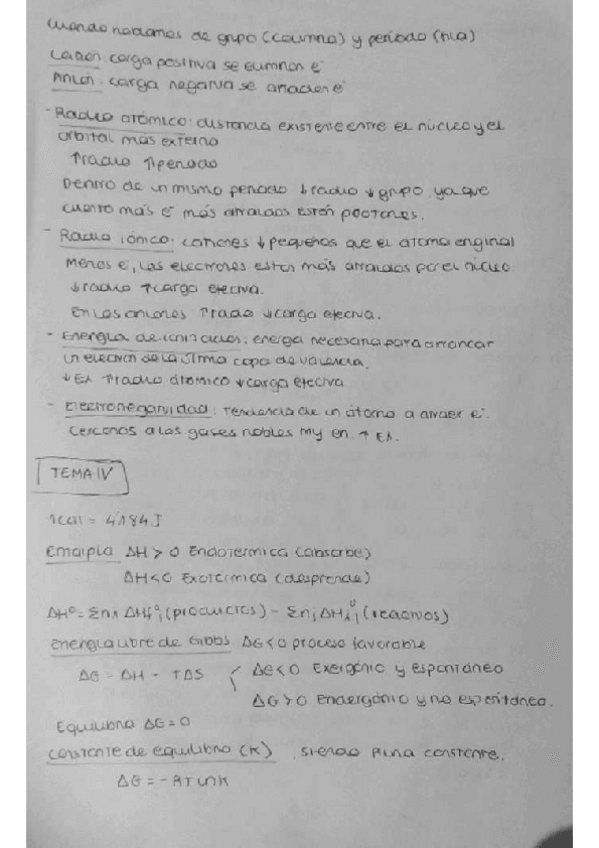 Cuando hablamos de grupo (columna) y período (fila)
Catión: carga positiva se eliminan e⁻
Anión: carga negativa se añaden e⁻
- Radio atómico: distancia existente entre el núcleo y el
orbital más externo
↑radio ↑periodo
Dentro de un mismo periodo ↓radio ↓grupo, ya que
cuanto más e⁻ más atraídos están protones.
- Radio iónico: cationes ↓pequeños que el átomo original
Menos e⁻, los electrones están más atraídos por el núcleo
↓radio ↑carga efectiva.
En los aniones ↑radio ↓carga efectiva.
- Energía de ionización: energía necesaria para arrancar
un electrón de la última capa de valencia.
↓EI ↑radio átomico ↓carga efectiva
- Electronegatividad: tendencia de un átomo a atraer e⁻.
Cercanos a los gases nobles my en. ↑
TEMA IV
1cal = 4'184J
Entalpía ΔH > 0 Endotérmica (absorbe)
ΔH < 0 Exotérmica (desprende)
ΔHº = Σni ΔHfºi (productos) - Σni ΔHfºi (reactivos)
Energía libre de Gibbs ΔG < 0 proceso favorable
ΔG = ΔH - TΔS ΔG < 0 Exergónio y espontáneo
ΔG > 0 Endergónio y no espontáneo.
Equilibrio ΔG = 0
Constante de equilibrio (K), siendo R una constante.
ΔG = - RT ln K